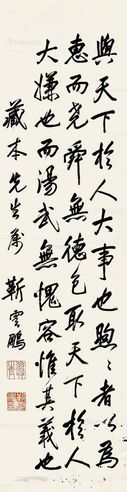 與天下於人大事也煦〻者以為
惠而堯舜無德色取天下於人
大嫌也而湯武無愧容惟其義也
藏本先生屬
靳雲鵬